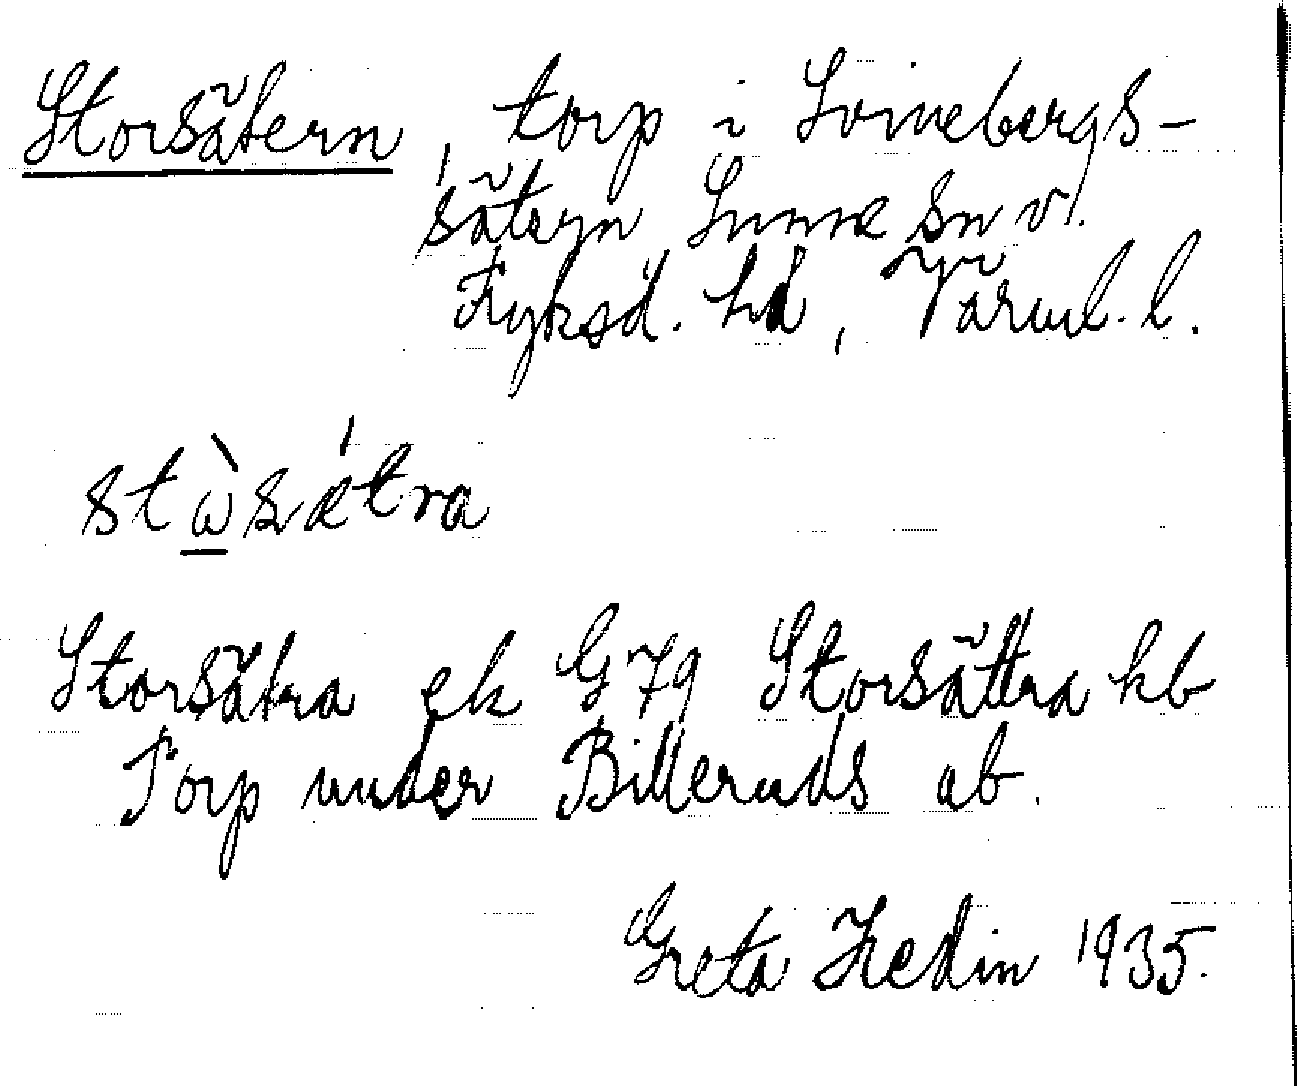 Storsätern, torp i Svinebergs-
sätern Sunne sn v.
Fyksd. hd, Värml. l.
stὼ̲sǽtra
Storsätra ek G 79 Storsättra kb
Torp under Billeruds ab.
Greta Hedin 1935.